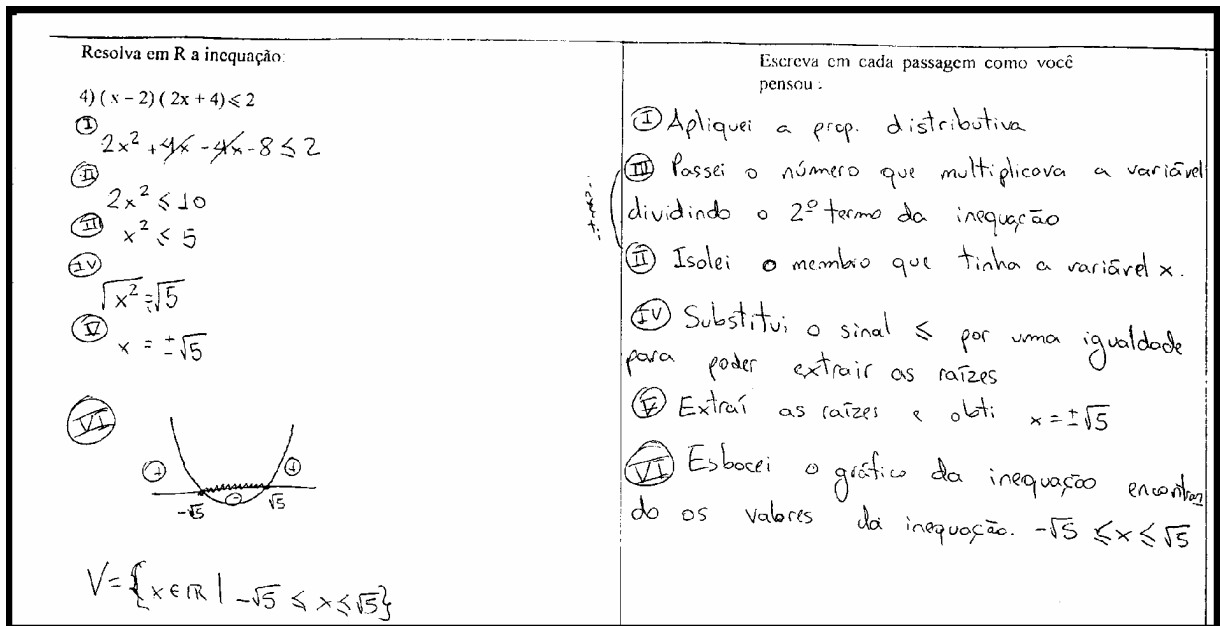 Resolva em R a inequação:
4) ( x – 2) ( 2x + 4) ≤ 2
I
2x² + 4x - 4x - 8 ≤ 2
II
2x² ≤ 10
III x² ≤ 5
IV
√x² = √5
V x = ±√5
VI
+ - +
-√5 √5
V = {x ∈ IR | -√5 ≤ x ≤ √5}
Escreva em cada passagem como você
pensou :
I Apliquei a prop. distributiva
III Passei o número que multiplicava a variável
dividindo o 2º termo da inequação
II Isolei o membro que tinha a variável x.
IV Substitui o sinal ≤ por uma igualdade
para poder extrair as raízes
V Extraí as raízes e obti x = ±√5
VI Esbocei o gráfico da inequação encontran
do os valores da inequação. -√5 ≤ x ≤ √5